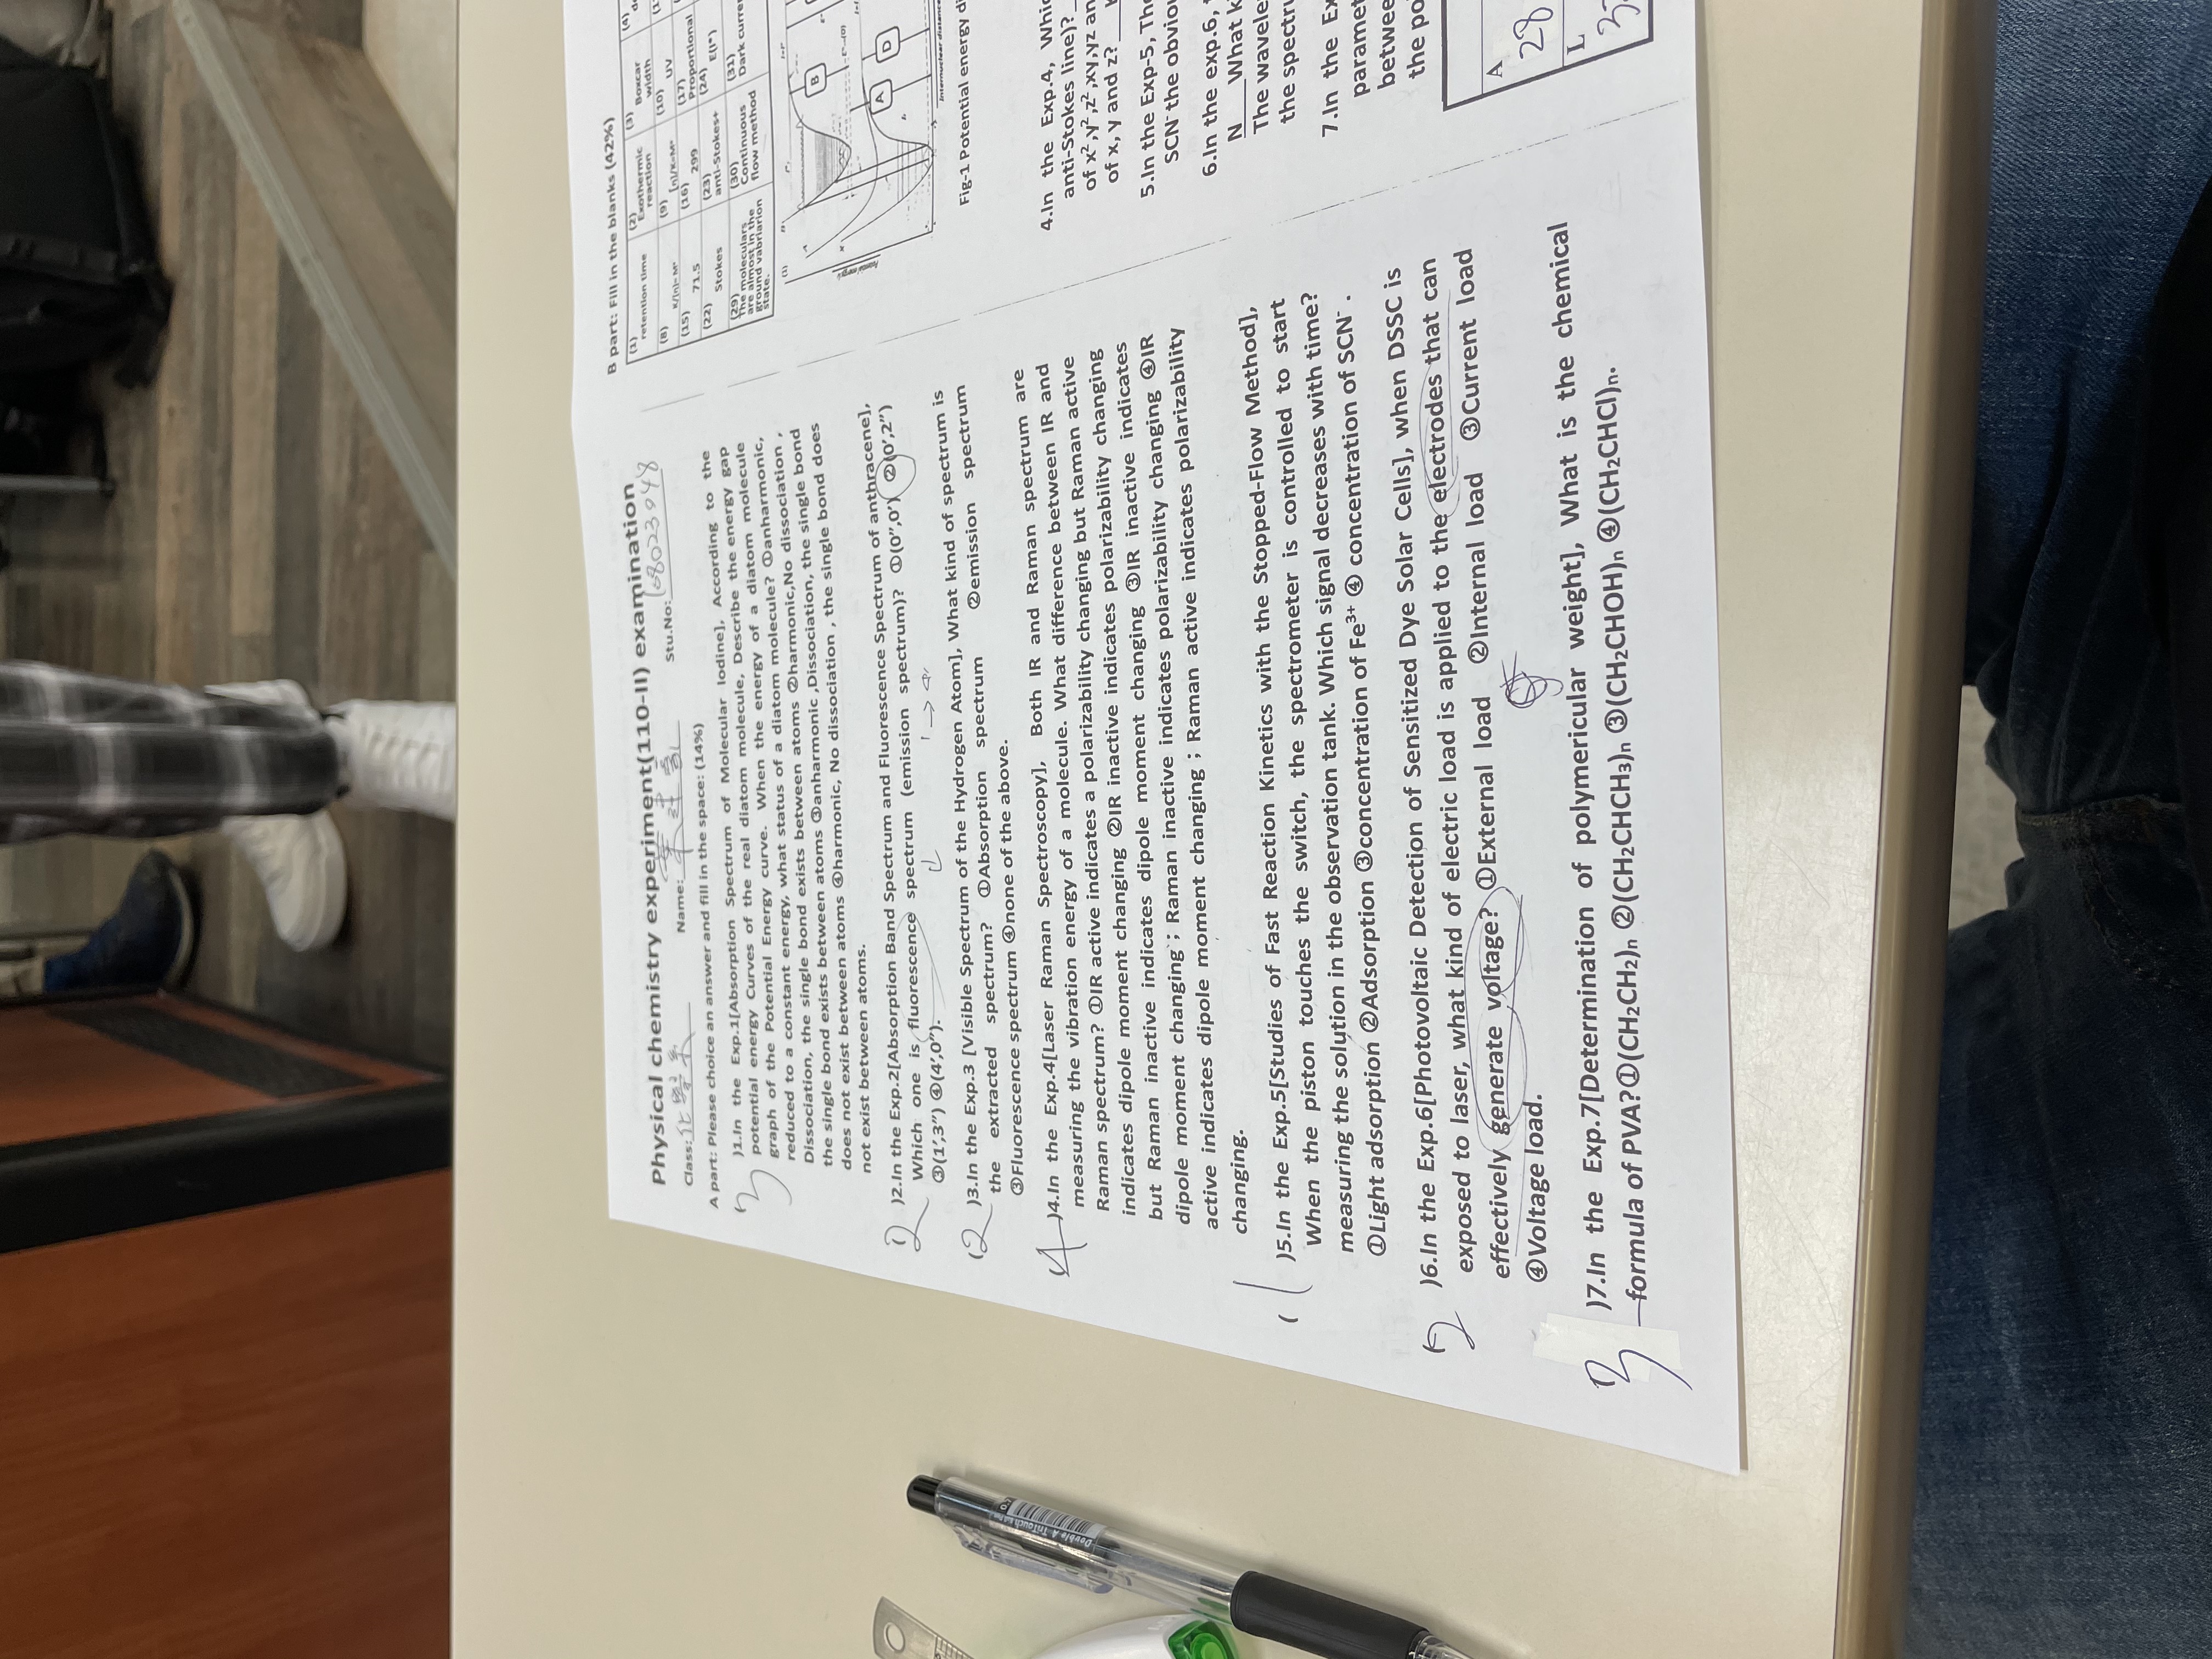 Physical chemistry experiment(110-II) examination
Class: 化學系 Name: Stu.No: 108023048
A part: Please choice an answer and fill in the space: (14%)
3 )1.In the Exp.1[Absorption Spectrum of Molecular Iodine], According to the
potential energy Curves of the real diatom molecule, Describe the energy gap
graph of the Potential Energy curve. When the energy of a diatom molecule
reduced to a constant energy, what status of a diatom molecule? ①anharmonic,
Dissociation, the single bond exists between atoms ②harmonic,No dissociation ,
the single bond exists between atoms ③anharmonic ,Dissociation, the single bond
does not exist between atoms ④harmonic, No dissociation , the single bond does
not exist between atoms.
2 )2.In the Exp.2[Absorption Band Spectrum and Fluorescence Spectrum of anthracene],
Which one is fluorescence spectrum (emission spectrum)? ①(0″,0′) ②(0′,2″)
③(1′,3″) ④(4′,0″).
(2 )3.In the Exp.3 [Visible Spectrum of the Hydrogen Atom], What kind of spectrum is
the extracted spectrum? ①Absorption spectrum ②emission spectrum
③Fluorescence spectrum ④none of the above.
4 )4.In the Exp.4[Laser Raman Spectroscopy], Both IR and Raman spectrum are
measuring the vibration energy of a molecule. What difference between IR and
Raman spectrum? ①IR active indicates a polarizability changing but Raman active
indicates dipole moment changing ②IR inactive indicates polarizability changing
but Raman inactive indicates dipole moment changing ③IR inactive indicates
dipole moment changing ; Raman inactive indicates polarizability changing ④IR
active indicates dipole moment changing ; Raman active indicates polarizability
changing.
( 1 )5.In the Exp.5[Studies of Fast Reaction Kinetics with the Stopped-Flow Method],
When the piston touches the switch, the spectrometer is controlled to start
measuring the solution in the observation tank. Which signal decreases with time?
①Light adsorption ②Adsorption ③concentration of Fe³⁺ ④ concentration of SCN⁻ .
2 )6.In the Exp.6[Photovoltaic Detection of Sensitized Dye Solar Cells], when DSSC is
exposed to laser, what kind of electric load is applied to the electrodes that can
effectively generate voltage? ①External load ②Internal load ③Current load
④Voltage load.
3 )7.In the Exp.7[Determination of polymericular weight], What is the chemical
formula of PVA?①(CH₂CH₂)ₙ ②(CH₂CHCH₃)ₙ ③(CH₂CHOH)ₙ ④(CH₂CHCl)ₙ.
B part: Fill in the blanks (42%)
(1) retention time (2) Exothermic reaction (3) Boxcar width (4)
(8) K/[n]= M* (9) [n]/K=M* (10) UV
(15) 71.5 (16) 299 (17) Proportional
(22) Stokes (23) anti-Stokes+ (24) E(I*)
(29) The moleculars are almost in the ground vabriarion state. (30) Continuous flow method (31) Dark curre
(1)
B
A
D
Internuclear distance
Fig-1 Potential energy di
4.In the Exp.4, Whic
anti-Stokes line)?
of x²,y²,z²,xy,yz an
of x, y and z?
5.In the Exp-5, The
SCN⁻ the obviou
6.In the exp.6,
N What k
The wavele
the spectru
7.In the Ex
paramet
betwee
the po
A
28
L
Double A TriTouch